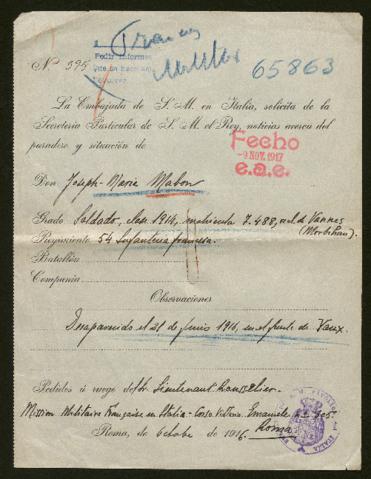 Francés
Militar
Pedir informes
Nº 395
65863
La Embajada de S. M. en Italia, solicita de la
Secretaria Particular de S. M. el Rey, noticias acerca del
paradero y situación de
Fecho
- 9 NOV. 1917
e.a.e.
Don Joseph-Marie Mabon
Grado Soldado, clase 1914, matricula 7.488, de Vannes
(Morbihan).
Regimiento 54 Infanteria francesa.
Batallón
Compania
Observaciones
Desaparecido el 21 de Junio 1916, en el frente de Vaux.
Pedidos á ruego del Sr. Lieutenant
Mission Militaire Française en Italia - Corso Vittorio Emanuele
Roma
Roma, de Octubre de 1916